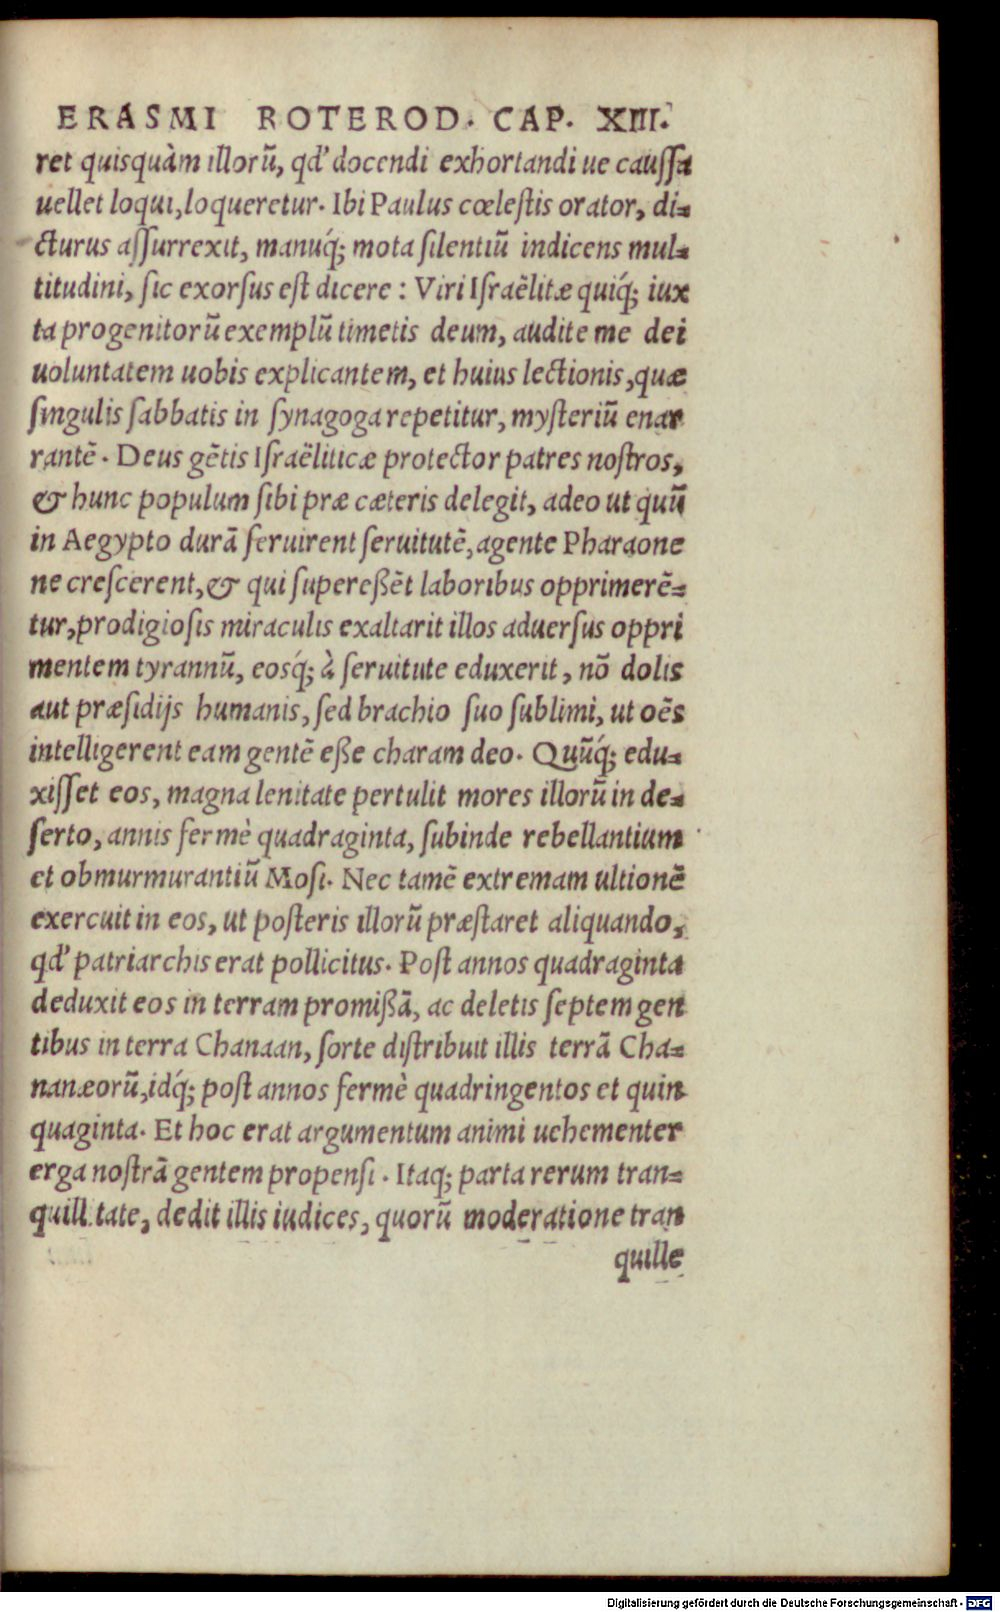 ERASMI ROTEROD. CAP. XIII.
ret quisquàm illorū, qđ docendi exhortandi ue caussa
uellet loqui, loqueretur. Ibi Paulus cœlestis orator, di=
cturus assurrexit, manuq́; mota silentiū indicens mul=
titudini, sic exorsus est dicere: Viri Israëlitæ quiq́; iux
ta progenitorū exemplū timetis deum, audite me dei
uoluntatem uobis explicantem, et huius lectionis, quæ
singulis sabbatis in synagoga repetitur, mysteriū enar
rantē. Deus gētis Israëliticæ protector patres nostros,
& hunc populum sibi præ cæteris delegit, adeo ut quū
in Aegypto durā seruirent seruitutē, agente Pharaone
ne crescerent, & qui supereßēt laboribus opprimerē=
tur, prodigiosis miraculis exaltarit illos aduersus oppri
mentem tyrannū, eosq́; à seruitute eduxerit, nō dolis
aut præsidijs humanis, sed brachio suo sublimi, ut oēs
intelligerent eam gentē eße charam deo. Quūq́; edu=
xisset eos, magna lenitate pertulit mores illorū in de=
serto, annis fermè quadraginta, subinde rebellantium
et obmurmurantiū Mosi. Nec tamē extremam ultionē
exercuit in eos, ut posteris illorū præstaret aliquando,
qđ patriarchis erat pollicitus. Post annos quadraginta
deduxit eos in terram promißā, ac deletis septem gen
tibus in terra Chanaan, sorte distribuit illis terrā Cha=
nanæorū, idq́; post annos fermè quadringentos et quin
quaginta. Et hoc erat argumentum animi uehementer
erga nostrā gentem propensi. Itaq; parta rerum tran=
quill tate, dedit illis iudices, quorū moderatione tran
quille
Digitalisierung gefördert durch die Deutsche Forschungsgemeinschaft - DFG